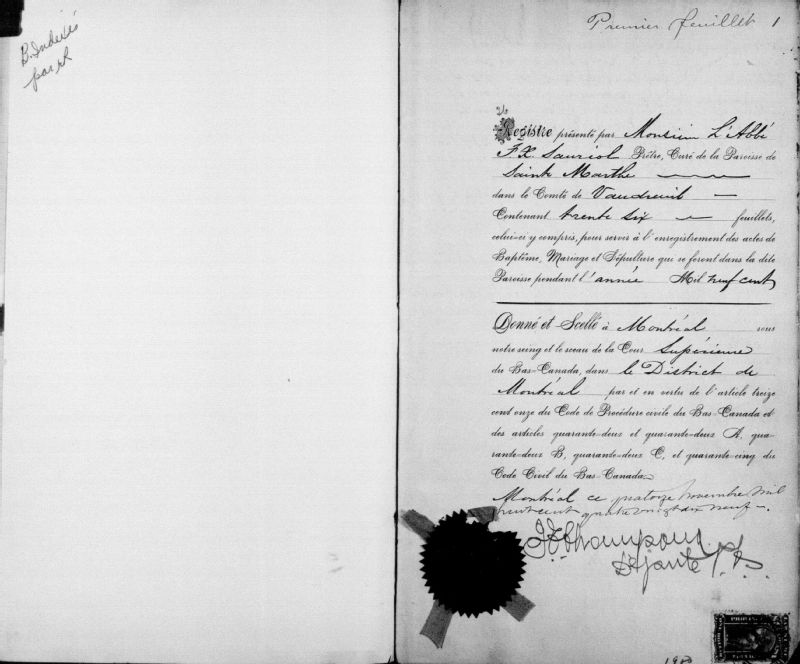 B. Indexés
par
Premier feuillet 1
26
Registre présenté par Monsieur L'Abbé
F. X. Sauriol Prêtre, Curé de la Paroisse de
Sainte Marthe
dans le Comté de Vaudreuil —
Contenant trente six — feuillets,
celui-ci y compris, pour servir à l'enregistrement des actes de
Baptême, Mariage et Sépulture qui se feront dans la dite
Paroisse pendant l'année Mil neuf cent
Donné et Scellé à Montréal sous
notre seing et le sceau de la Cour Supérieure
du Bas-Canada, dans le District de
Montréal par et en vertu de l'article treize
cent onze du Code de Procédure civile du Bas-Canada et
des articles quarante-deux et quarante-deux A, qua-
rante-deux B, quarante-deux C, et quarante-cinq du
Code Civil du Bas-Canada.
Montréal ce quatorze Novembre Mil
huit cent quatre vingt dix neuf —.
Champoux
1900